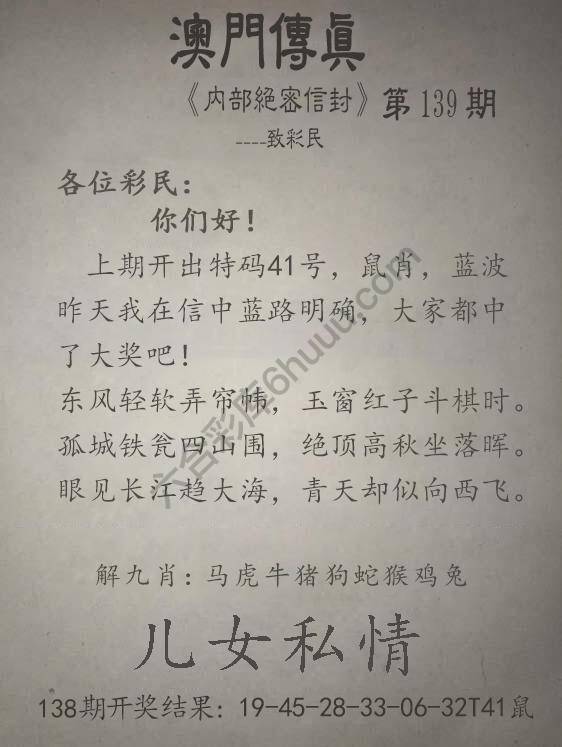 澳門傳眞
《内部絕密信封》第139期
----致彩民
各位彩民：
你们好！
上期开出特码41号，鼠肖，蓝波
昨天我在信中蓝路明确，大家都中
了大奖吧！
东风轻软弄帘帏，玉窗红子斗棋时。
孤城铁瓮四山围，绝顶高秋坐落晖。
眼见长江趋大海，青天却似向西飞。
六合彩库6huuu.com
解九肖：马虎牛猪狗蛇猴鸡兔
儿女私情
138期开奖结果：19-45-28-33-06-32T41鼠